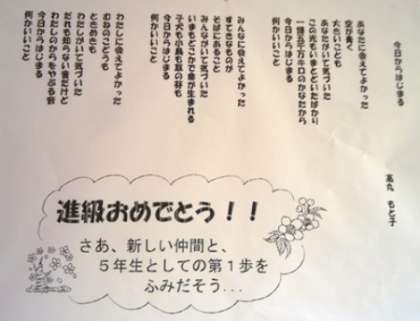 今日からはじまる
高丸 もと子
あなたに会えてよかった
空が青く
大きいことも
あなたがいて気づいた
この光もいまとどいたばかり
一億五千万キロのかなたから
今日からはじまる
何かいいこと
みんなに会えてよかった
すてきなものが
そばにあること
みんながいて気づいた
いまもどこかで命が生まれる
子犬も小鳥も草の芽も
今日からはじまる
何かいいこと
わたしに会えてよかった
むねのこどうも
ときめきも
わたしがいて気づいた
だれも知らない音だけど
わたしのからをやぶる音
今日からはじまる
何かいいこと
進級おめでとう！！
さあ、新しい仲間と、
５年生としての第１歩を
ふみだそう...